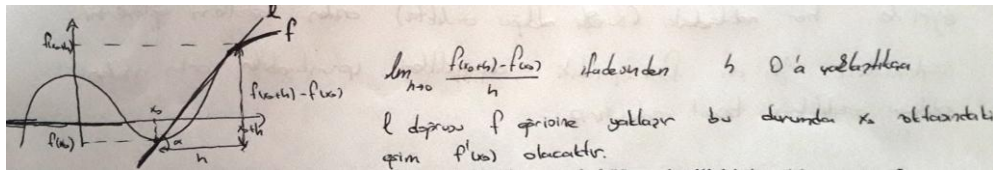 l
f
f(x₀+h)
f(x₀+h) - f(x₀)
x₀
x₀+h
f(x₀)
α
h
lim h→0 f(x₀+h) - f(x₀) / h ifadesinden h 0'a yaklaştıkça
l doğrusu f eğrisine yaklaşır bu durumda x₀ noktasındaki
eğim f'(x₀) olacaktır.